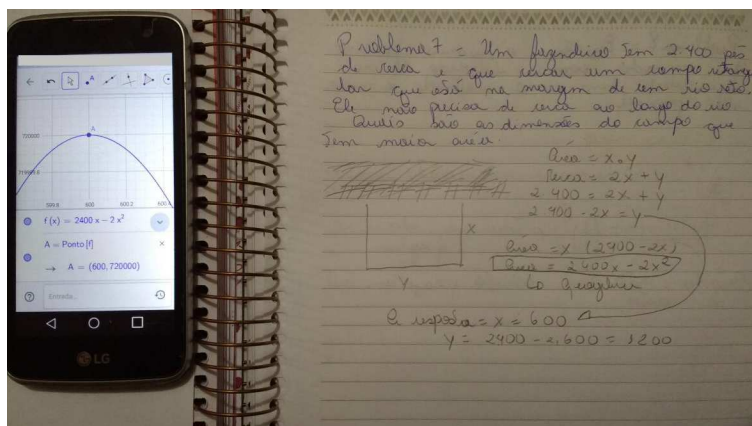 A
720000
719999.8
599.8
600
600.2
f(x) = 2400 x − 2 x²
A = Ponto[f]
→ A = (600, 720000)
Entrada...
LG
Problema 7 = Um fazendeiro tem 2.400 pés
de cerca e quer cercar um campo retangu
lar que está na margem de um rio reto.
Ele não precisa de cerca ao longo do rio.
Quais são as dimensões do campo que
tem maior área.
Área = x.y
Cerca = 2x + y
2 400 = 2x + y
2 400 - 2x = y
X
Área = x (2400 - 2x)
Área = 2400x - 2x²
Y
↳ Geogebra
resposta = x = 600
Y = 2400 - 2.600 = 1200